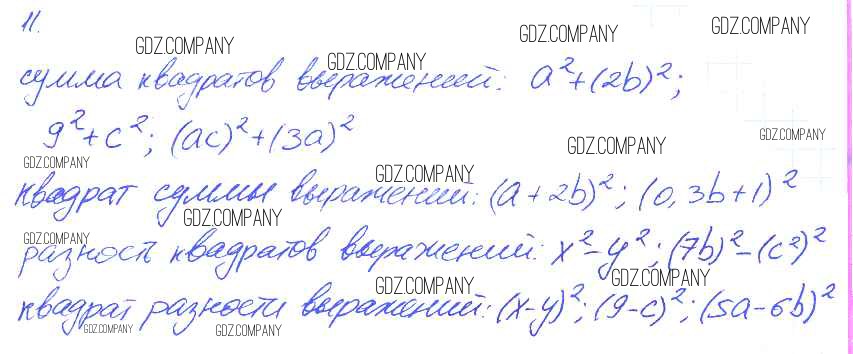 11.
GDZ.COMPANY GDZ.COMPANY GDZ.COMPANY GDZ.COMPANY
сумма квадратов выражений: a²+(2b)²;
9²+c²; (ac)²+(3a)²
GDZ.COMPANY GDZ.COMPANY GDZ.COMPANY GDZ.COMPANY
квадрат суммы выражений: (a+2b)²; (0,3b+1)²
GDZ.COMPANY GDZ.COMPANY
разность квадратов выражений: x²-y²; (7b)²-(c²)²
GDZ.COMPANY GDZ.COMPANY
квадрат разности выражений: (x-y)²; (9-c)²; (5a-6b)²
GDZ.COMPANY GDZ.COMPANY